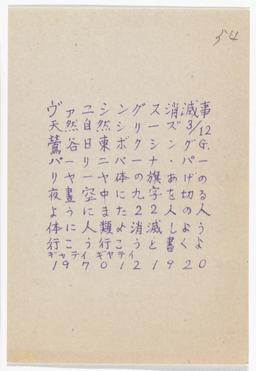 54
ヴァニシング消滅事
天然自然シリーズ3/12
鶯谷日東ボクシングG.
パーリニバーナ・パー
リヤーヤ体の旗あげの
夜晝空中に九字を切る
ように人類よ消滅しよう
行こう行こうと書く
ギャティ ギャティ
1970121920